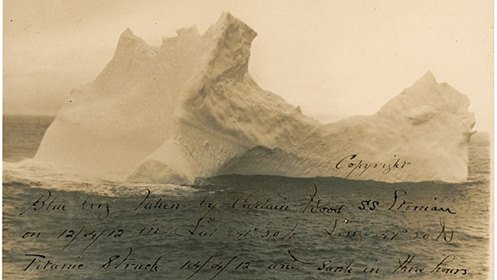 Copyright
Blue berg Taken by Captain Wood SS Etonian
on 12/4/12 in Lat 41°50 N Long 49°50 W
Titanic Struck 14/4/12 and sank in three hours